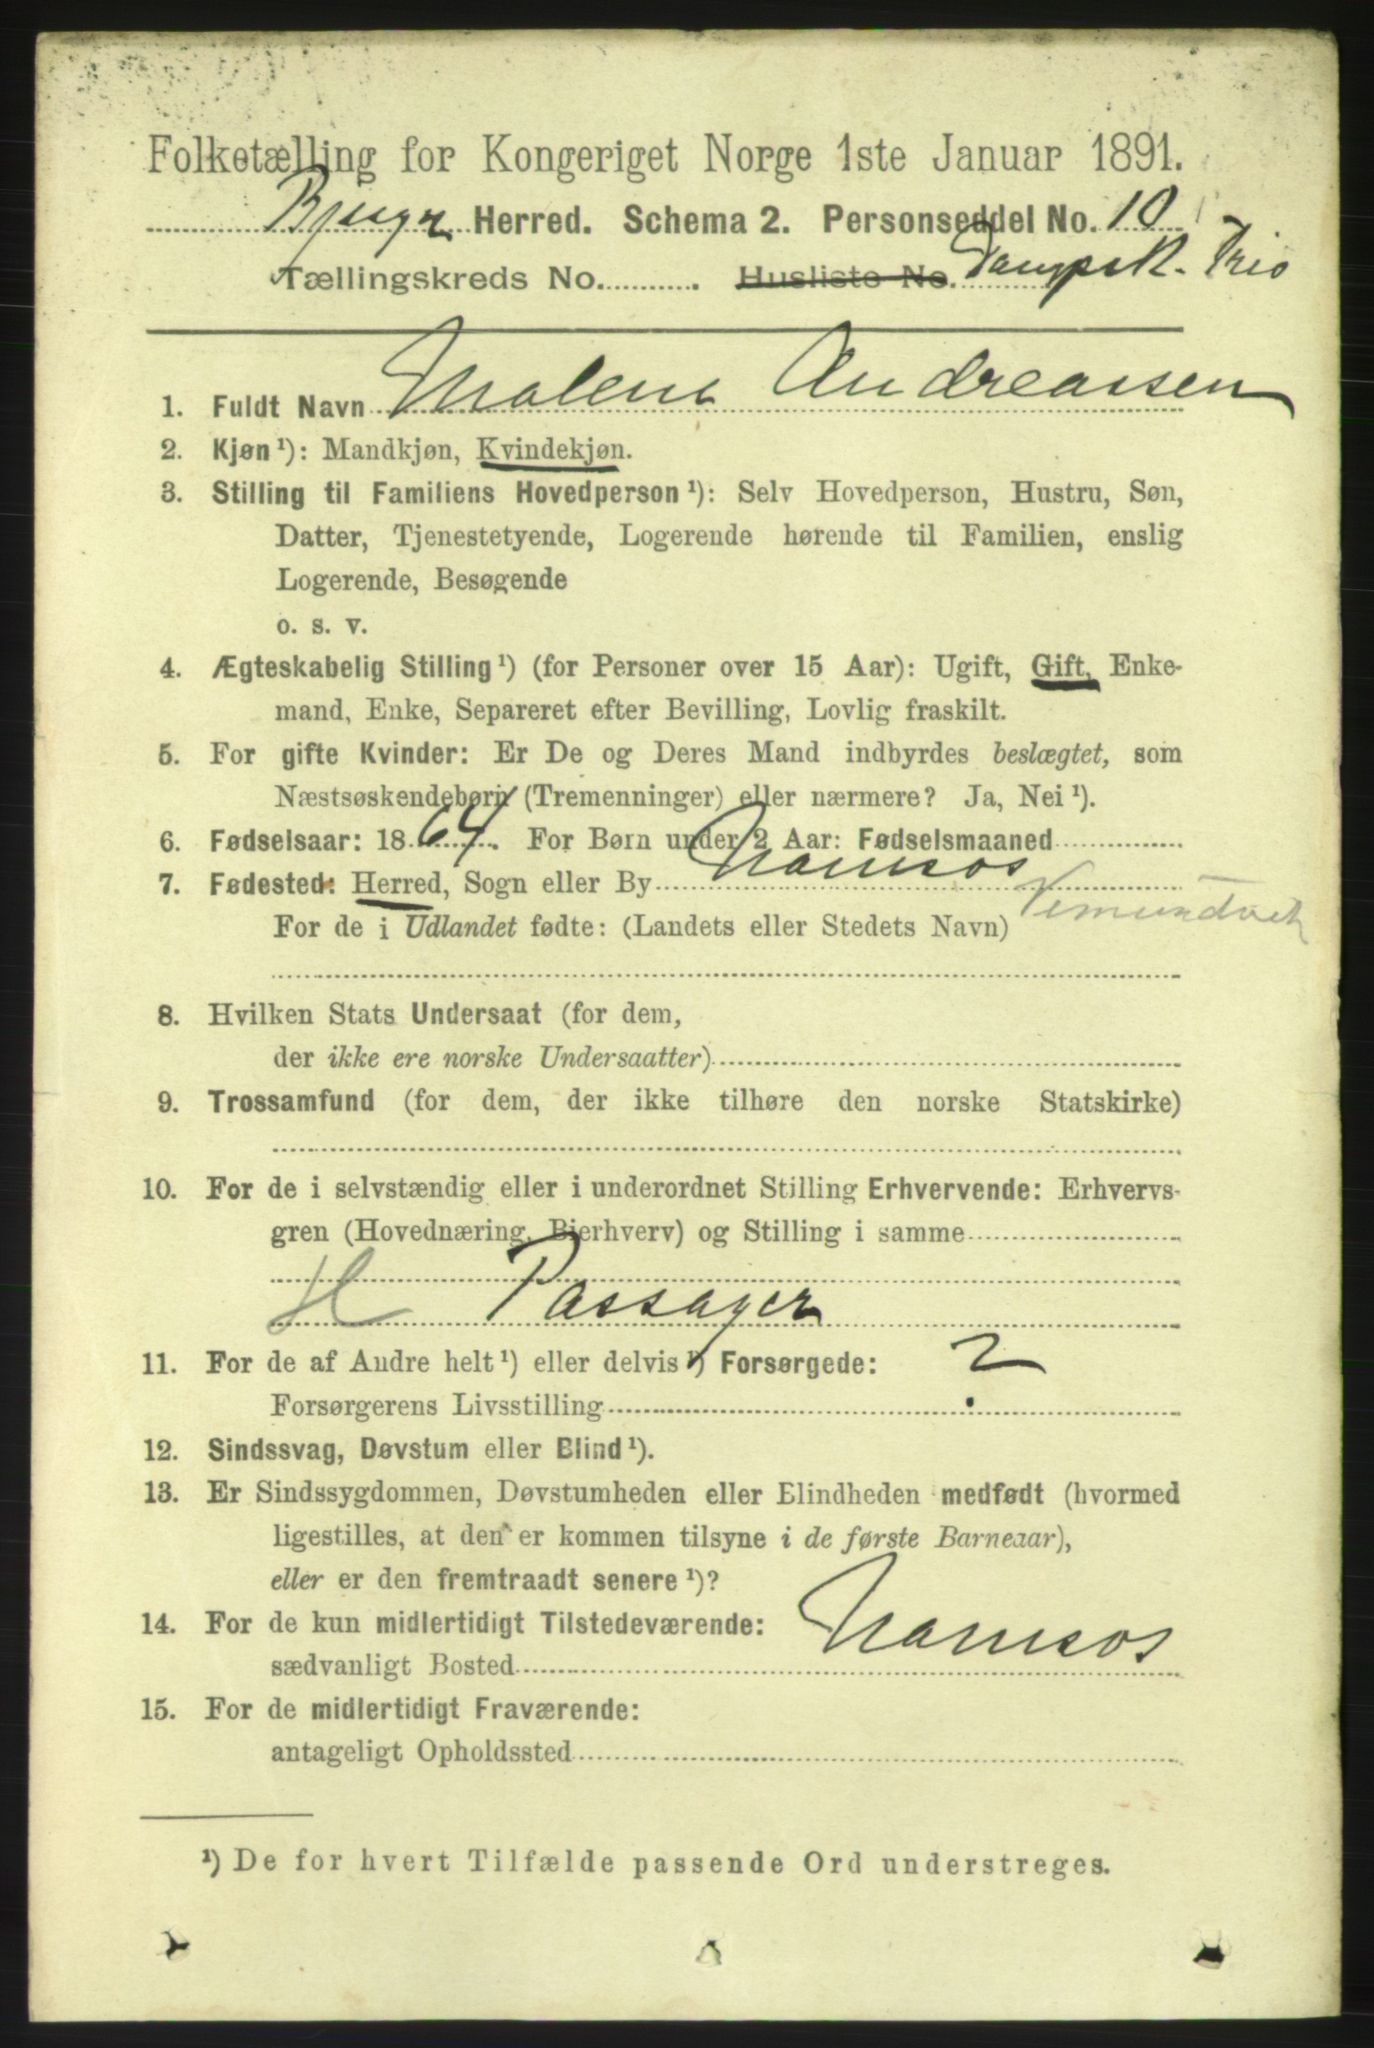 Folketælling for Kongeriget Norge 1ste Januar 1891.
Bjugn Herred. Schema 2. Personseddel No. 10
Tællingskreds No. Husliste No. Dampsk. Trio
1. Fuldt Navn Malene Andreassen
2. Kjøn¹): Mandkjøn, Kvindekjøn.
3. Stilling til Familiens Hovedperson¹): Selv Hovedperson, Hustru, Søn,
Datter, Tjenestetyende, Logerende hørende til Familien, enslig
Logerende, Besøgende
o. s. v.
4. Ægteskabelig Stilling¹) (for Personer over 15 Aar): Ugift, Gift, Enke-
mand, Enke, Separeret efter Bevilling, Lovlig fraskilt.
5. For gifte Kvinder: Er De og Deres Mand indbyrdes beslægtet, som
Næstsøskendebørn (Tremenninger) eller nærmere? Ja, Nei¹).
6. Fødselsaar: 1864. For Børn under 2 Aar: Fødselsmaaned
7. Fødested: Herred, Sogn eller By Namsos
Vemundvik
For de i Udlandet fødte: (Landets eller Stedets Navn)
8. Hvilken Stats Undersaat (for dem,
der ikke ere norske Undersaatter)
9. Trossamfund (for dem, der ikke tilhøre den norske Statskirke)
10. For de i selvstændig eller i underordnet Stilling Erhvervende: Erhvervs-
gren (Hovednæring, Bierhverv) og Stilling i samme
H Passager
11. For de af Andre helt¹) eller delvis¹) Forsørgede: ?
Forsørgerens Livsstilling
12. Sindssvag, Døvstum eller Blind¹).
13. Er Sindssygdommen, Døvstumheden eller Blindheden medfødt (hvormed
ligestilles, at den er kommen tilsyne i de første Barneaar),
eller er den fremtraadt senere¹)?
14. For de kun midlertidigt Tilstedeværende:
sædvanligt Bosted Namsos
15. For de midlertidigt Fraværende:
antageligt Opholdssted
¹) De for hvert Tilfælde passende Ord understreges.